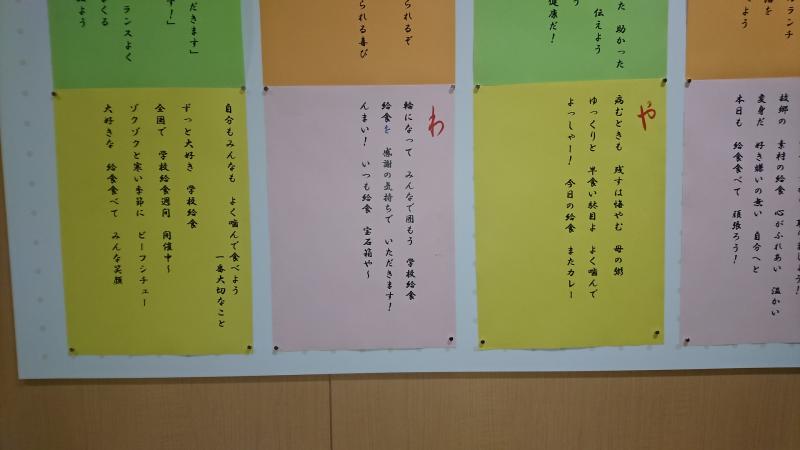 た 助かった
伝えよう
う
健康だ！
られるぞ
られる喜び
だきます」
す！」
ランスよく
くる
よう
ランチ
を
よう
故郷の 素材の給食 心がふれあい 温かい
変身だ 好き嫌いの無い 自分へと
本日も 給食食べて 頑張ろう！
や
病むときも 残すは悔やむ 母の粥
ゆっくりと 早食い駄目よ よく噛んで
よっしゃー！ 今日の給食 またカレー
わ
輪になって みんなで囲もう 学校給食
給食を 感謝の気持ちで いただきます！
んまい！ いつも給食 宝石箱や～
自分もみんなも よく噛んで食べよう
一番大切なこと
ずっと大好き 学校給食
全国で 学校給食週間 開催中～
ゾクゾクと寒い季節に ビーフシチュー
大好きな 給食食べて みんな笑顔